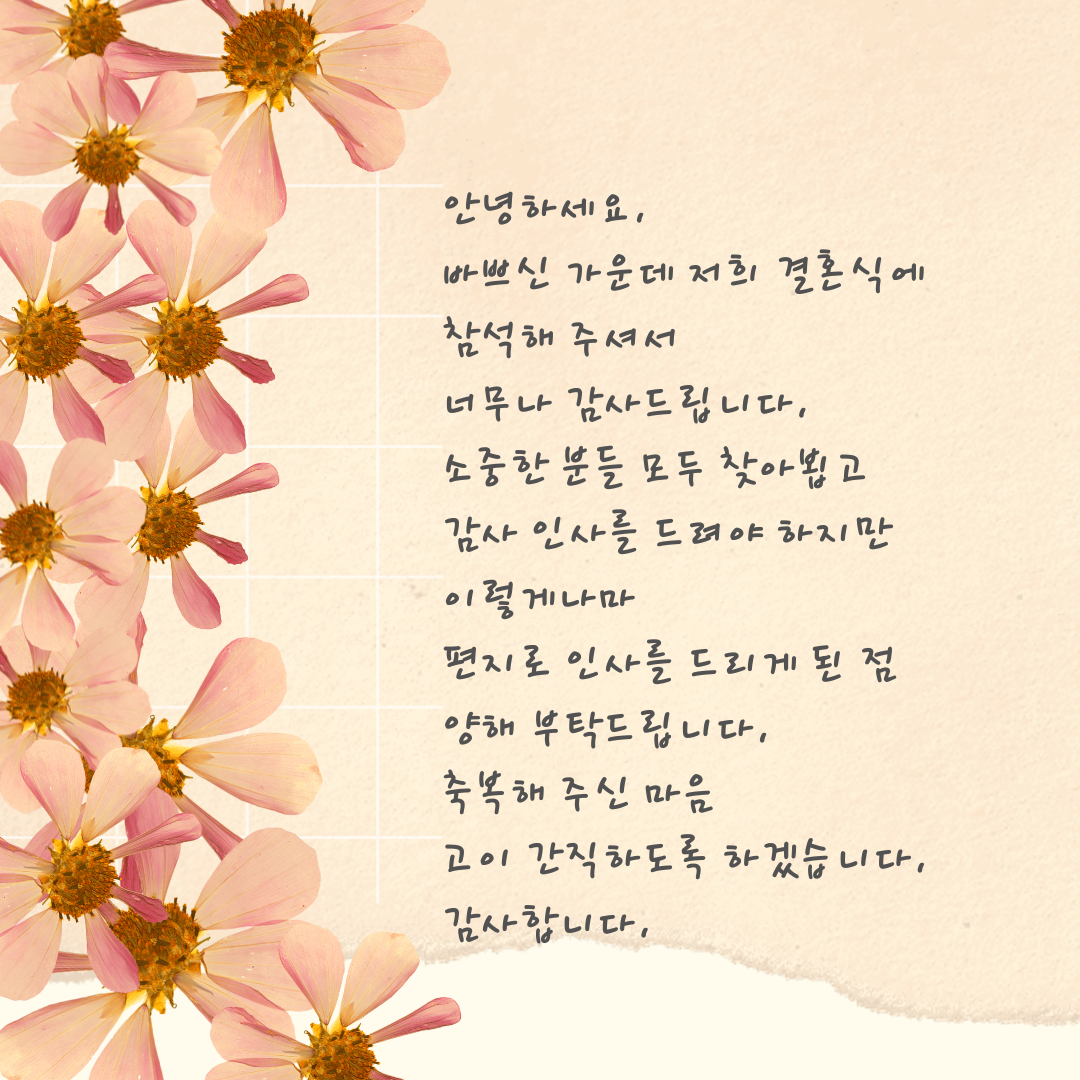 안녕하세요,
바쁘신 가운데 저희 결혼식에
참석해 주셔서
너무나 감사드립니다,
소중한 분들 모두 찾아뵙고
감사 인사를 드려야 하지만
이렇게나마
편지로 인사를 드리게 된 점
양해 부탁드립니다,
축복해 주신 마음
고이 간직하도록 하겠습니다,
감사합니다,